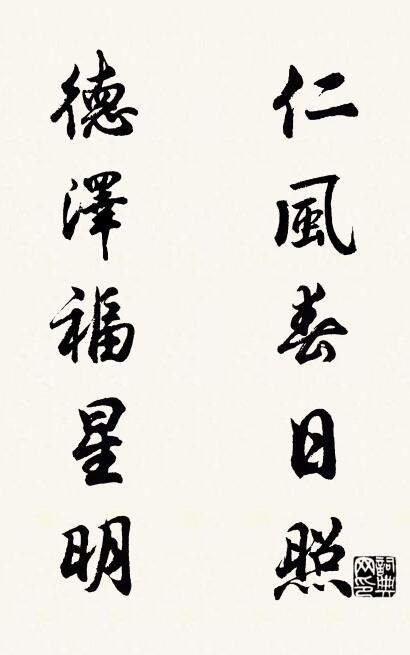 仁風春日照
德澤福星明
詞典网印